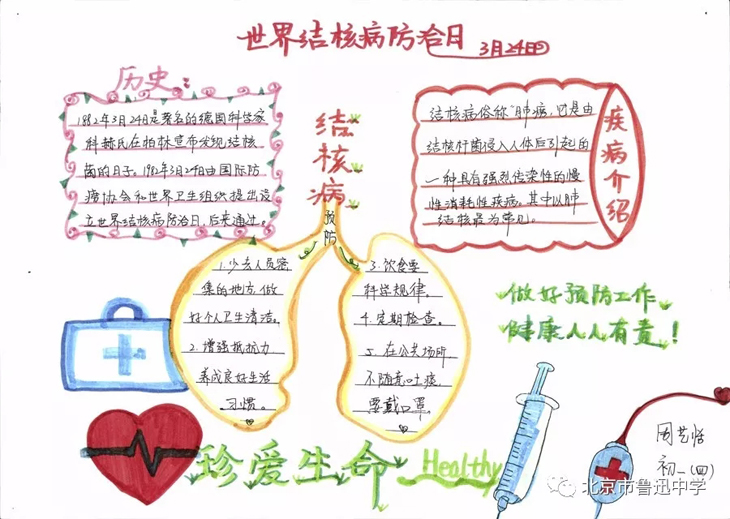 世界结核病防治日
3月24日
历史:
1982年3月24日是著名的德国科学家
科赫氏在柏林宣布发现结核
菌的日子。1982年3月24日由国际防
痨协会和世界卫生组织提出设
立世界结核病防治日,后来通过。
结核病
预防
结核病俗称“肺痨”,它是由
结核杆菌侵入人体后引起的
一种具有强烈传染性的慢
性消耗性疾病。其中以肺
结核最为常见。
疾病介绍
1.少去人员密
集的地方,做
好个人卫生清洁。
2.增强抵抗力
养成良好生活
习惯。
3.饮食要
科学规律。
4.定期检查。
5.在公共场所
不随意吐痰
要戴口罩。
做好预防工作
健康人人有责!
珍爱生命
Healthy
初一(四)
北京市鲁迅中学